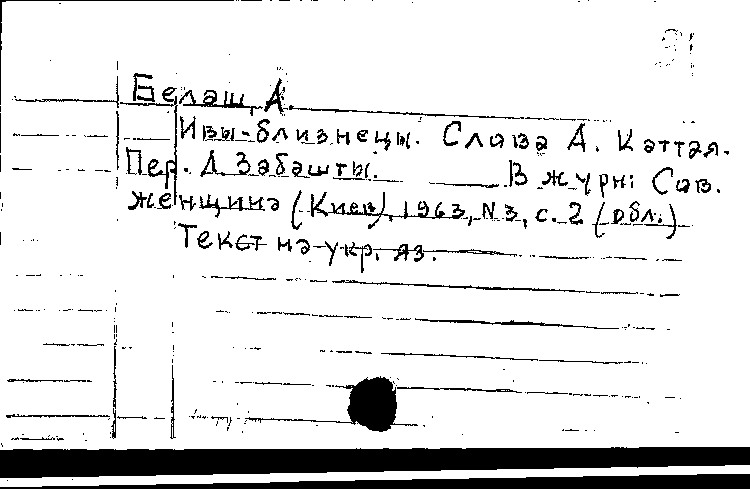 91
Белаш, А.
Ивы-близнецы. Слова А. Каттая.
Пер. Л. Забашты. В журн: Сов.
женщина (Киев), 1963, N 3, с. 2 (обл.)
Текст на укр. яз.